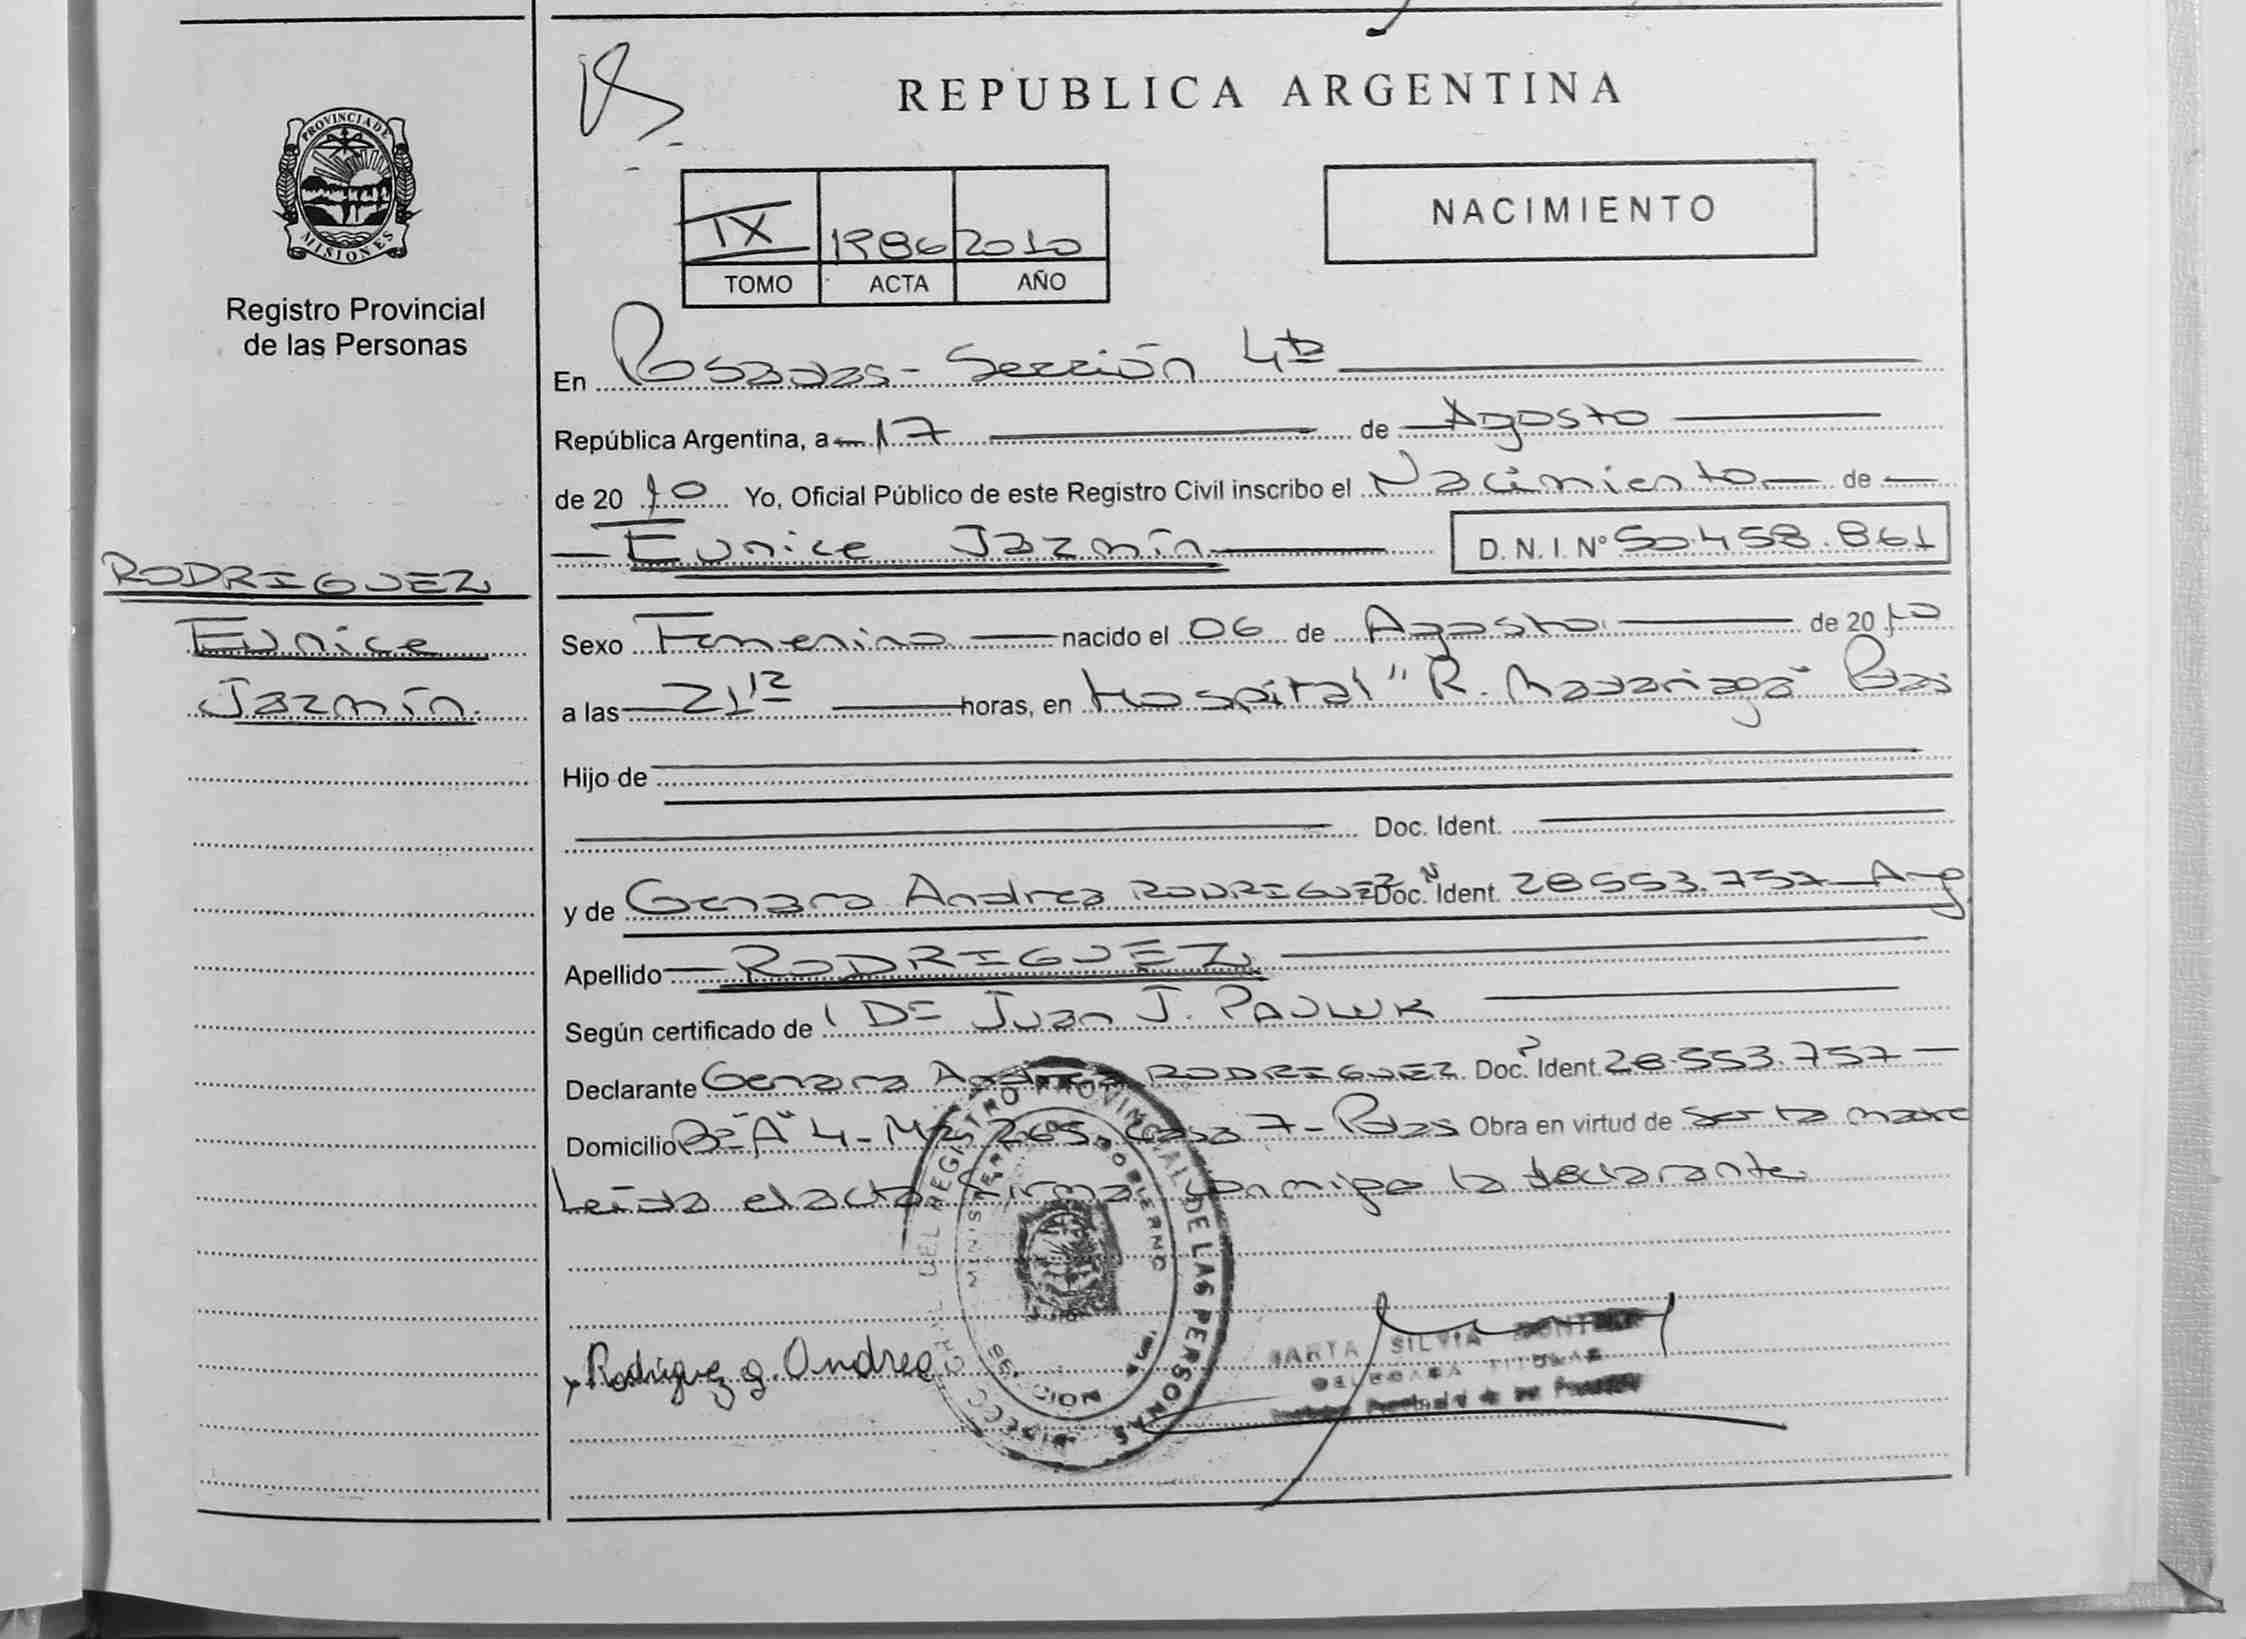 REPUBLICA ARGENTINA
PROVINCIA DE MISIONES
Registro Provincial
de las Personas
NACIMIENTO
IX 1986 2010
TOMO ACTA AÑO
En Posadas - Sección 4ta
República Argentina, a 17 de Agosto
de 2010 Yo, Oficial Público de este Registro Civil inscribo el Nacimiento de
Eunice Jazmín D. N. I. Nº 50.458.861
RODRIGUEZ
Eunice
Jazmín.
Sexo Femenino nacido el 06 de Agosto de 2010
a las 21 12 horas, en Hospital "R. Madariaga" Pdas
Hijo de
Doc. Ident.
y de Genara Andrea RODRIGUEZ Doc. Nº Ident. 28.553.757 - Arg
Apellido RODRIGUEZ
Según certificado de Juan J. PAULUK
Declarante Genara Andrea RODRIGUEZ Doc. Ident. 28.553.757
Domicilio Bº "A" 4 - Mz 265, Casa 7 - Pdas Obra en virtud de ser la madre
Leída el acta, firma conmigo la declarante.
DEL REGISTRO PROVINCIAL DE LAS PERSONAS
MINISTERIO GOBIERNO
Rodriguez g. Andrea
MARTA SILVIA
DELEGADA TITULAR